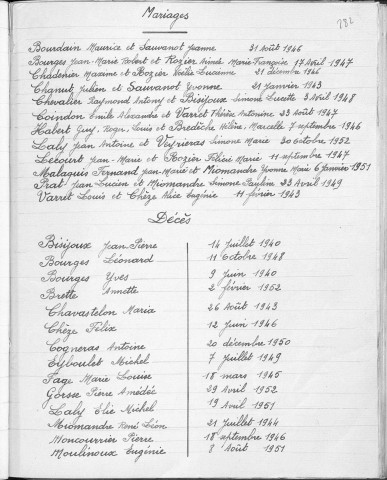 Mariages
282
Bourdain Maurice et Sauvanot Jeanne 31 Août 1946
Bourges Jean-Marie Robert et Rozier Aimée Marie Françoise 17 Avril 1947
Chadenier Maxime et Rozier Noëlie Lucienne 21 décembre 1946
Chanut Julien et Sauvanot Yvonne 21 janvier 1943
Chevalier Raymond Antony et Bisijoux Simone Lucette 3 Avril 1948
Coindon Emile Alexandre et Varret Thérèse Antonine 23 Août 1947
Habert Guy, Roger, Louis et Bredèche Hélène, Marcelle 7 septembre 1946
Laly Jean Antoine et Veyrieras Simone Marie 30 octobre 1952
Lecourt Jean-Marie et Rozier Félicie Marie 11 septembre 1947
Malaquis Fernand Jean-Marie et Miomandre Yvonne Marie 6 janvier 1951
Prat Jean Lucien et Miomandre Simone Pauline 23 Avril 1949
Varret Louis et Chèze Alice Eugénie 11 février 1943
Décès
Bisijoux Jean Pierre 14 juillet 1940
Bourges Léonard 11 Octobre 1948
Bourges Yves 9 juin 1940
Brette Annette 2 février 1952
Chavastelon Maria 26 Août 1943
Chèze Félix 12 juin 1946
Cogneras Antoine 20 décembre 1950
Eyboulet Michel 7 juillet 1949
Fage Marie Louise 18 mars 1945
Gorsse Pierre Amédée 29 Avril 1952
Laly Élie Michel 19 Avril 1951
Miomandre René Léon 21 juillet 1944
Moncourrier Pierre 18 septembre 1946
Moulinoux Eugénie 8 Août 1951